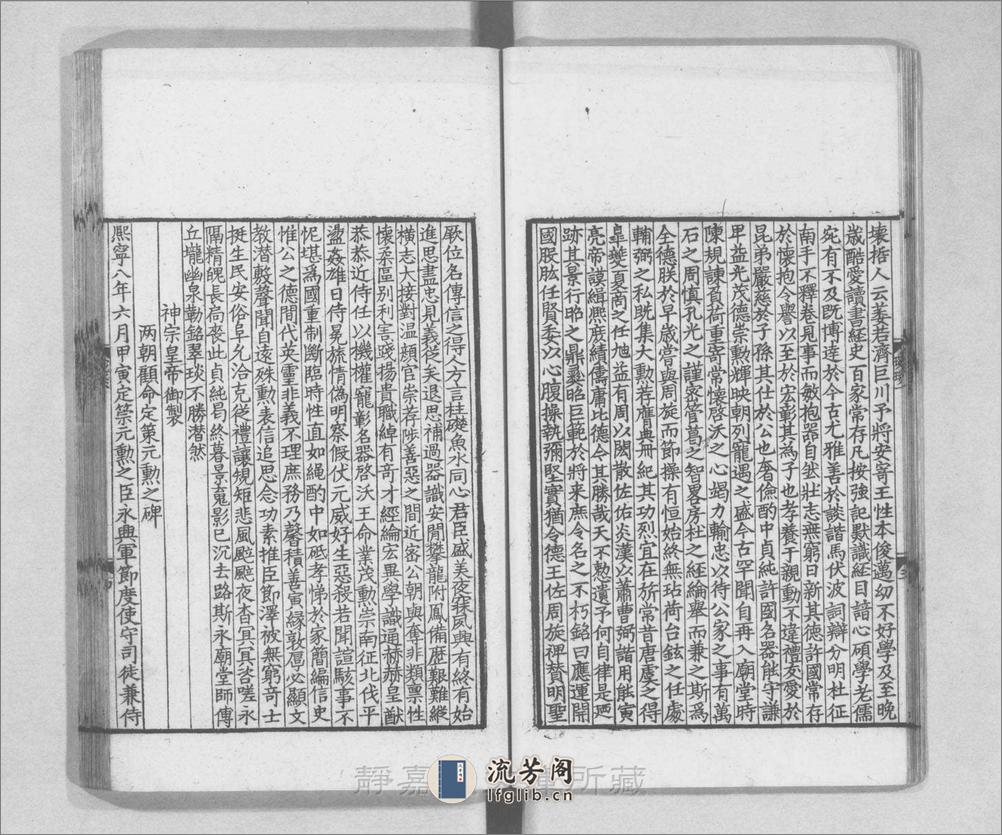 壞捂人云萎若濟巨川予將安寄王性本俊邁幼不好學及至晚
歲酷愛讀書經史百家常存几桉強記默識經目諳心碩學老儒
宛有不及既博達於今古尤雅善於談諧馬伏波詞辯分明杜征
南手不釋卷見事而敏抱器自然壯志無窮日新其德許國常存
於懷抱令譽以至於宏彰其為子也孝養于親動不違禮友愛於
昆弟嚴慈於子孫其仕於公也奢儉酌中貞純許國名器能守謙
甲益光茂德崇勳輝映朝列寵遇之盛今古罕聞自再入廟堂時
陳規諫負荷重寄常懷啓沃之心竭力輸忠以待公家之事有萬
石之周慎孔光之謹密管葛之智略房杜之經綸舉而兼之斯為
全德朕於早歲嘗與周旋而節操有恒始終無玷荷台鉉之任處
輔弼之私既集大勳荐膺典冊紀其功烈宜在旂常昔唐虞之得
皐夔夏啇之任旭益有周以閎散佐佐炎漢以蕭曹弼諧用能寅
亮帝謨緝熈庶績儔庸比德今其勝哉天不憗遺予何自律是迊
跡其景行昭之鼎彝昭巨範於將來庶令名之不朽銘曰應運開
國股肱任賢委以心腹操執彌堅實猶令德王佐周旋裨賛明聖
厥位名傳信之得人方言柱礎魚水同心君臣盛美夜寐夙興有終有始
進思盡忠見義從矣退思補過器識安閒攀龍附鳳備歷艱難縱
橫志大接對温顔官崇荐陟善惡之間近家公朝與奪非類禀性
懷柔區別利害踐揚貴職綽有奇才經綸宏異學識通赫赫皇猷
恭恭近侍任以機權寵彰名器啓沃王命業茂勳崇南征北伐平
盪姦雄日侍冕旒情偽明察假伏元威好生惡殺若聞諠駭事不
怩堪為國重制斷臨時性直如繩酌中如砥孝悌於家簡編信史
惟公之德間代英靈非義不理庶務乃馨積善寅縁敦厚必顯文
教潛敷聲聞自遠殊勳表信追思念功素推臣節澤被無窮奇士
挺生民安俗阜允洽克從禮讓規矩悲風颭颭夜杳冥冥吝嗟永
隔精魄長扃喪此貞純曷終暮景䰟影已沉去路斯永廟堂師傅
丘壠幽泉勒銘翠琰不勝潜然
神宗皇帝御製
兩朝顧命定策元勳之碑
熈寧八年六月甲寅定䇿元勳之臣永興軍節度使守司徒兼侍
静嘉
所藏
流芳阁
lfglib.cn